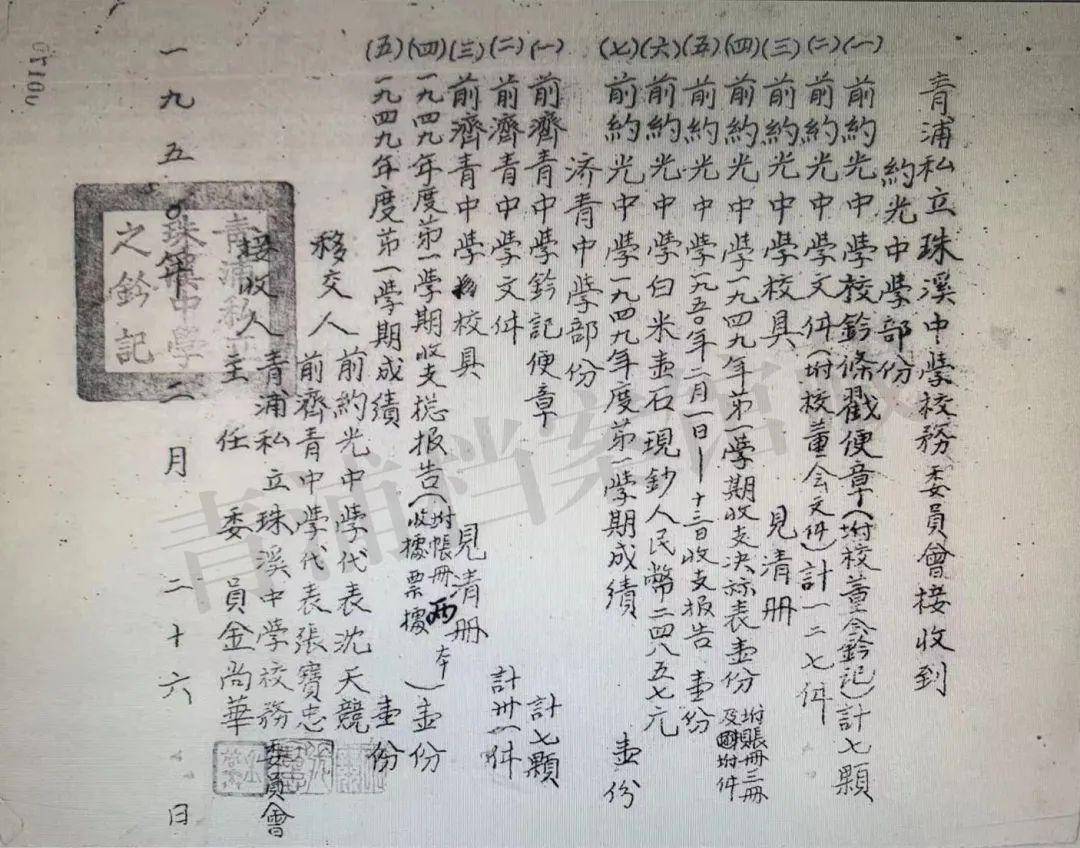 青浦私立珠溪中學校務委員會接收到
約光中學部份
(一)前約光中學校鈐條戳便章(坿校董会鈐記)計七顆
(二)前約光中學文件(坿校董会文件)計一二七件
(三)前約光中學校具 見清册
(四)前約光中學一九四九年第一學期收支決祘表壶份 坿賬冊三冊及坿件
(五)前約光中學一九五〇年二月一日—十三日收支报告 壶份
(六)前約光中學白米壶石現鈔人民幣二四八五七元
(七)前約光中學一九四九年度苐一學期成績 壶份
济青中學部份
(一)前濟青中學鈐記便章 計七顆
(二)前濟青中學文件 計卅一件
(三)前濟青中學校具 見清册
(四)一九四九年度苐一學期收支捴报告(坿帳冊兩本收據票據)壶份
(五)一九四九年度苐一學期成績 壶份
移交人 前約光中學代表沈天競
前濟青中學代表張寶忠
接收人 青浦私立珠溪中學校務委員會
主任委員金尚華
一九五〇年二月二十六日
青浦私立
珠溪中學
之鈐記
00170
青浦档案馆